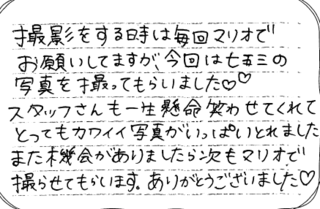 撮影をする時は毎回マリオで
お願いしてますが、今回は七五三の
写真を撮ってもらいました♡♡
スタッフさんも一生懸命笑わせてくれて
とってもカワイイ写真がいっぱいとれました
また機会がありましたら次もマリオで
撮らせてもらいます。ありがとうございました♡